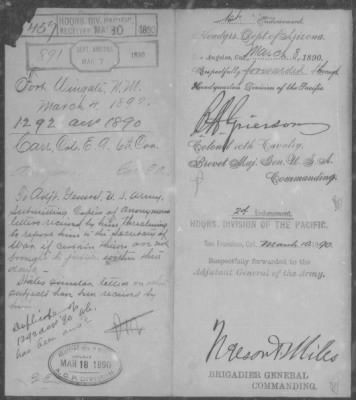 457
HDQRS. DIV. PACIFIC,
RECEIVED MAR 10 1890
891
DEPT. ARIZONA
MAR 7 1890
Fort Wingate, N.M.
March 4, 1890.
1292 1890
Carr, Col. E. A. 6th Cav.
To Adjt. General, U.S. Army.
Submitting copies of anonymous
letter received by him threatening
to report him to the Secretary of
War if certain
brought to justice within
date.
States similar letters on other
subjects have been received by
him.
has been
MAR 18 1890
1st Endorsement
Headqrs. Dept. of Arizona
Los Angeles, Cal. March 8, 1890.
Respectfully forwarded through
Headquarters Division of the Pacific
B. H. Grierson
Colonel 10th Cavalry,
Brevet Maj. Gen. U. S. A.
Commanding.
2d Endorsement.
HDQRS. DIVISION OF THE PACIFIC.
San Francisco, Cal. March 10, 1890.
Respectfully forwarded to the
Adjutant General of the Army.
Nelson A. Miles
BRIGADIER GENERAL
COMMANDING.